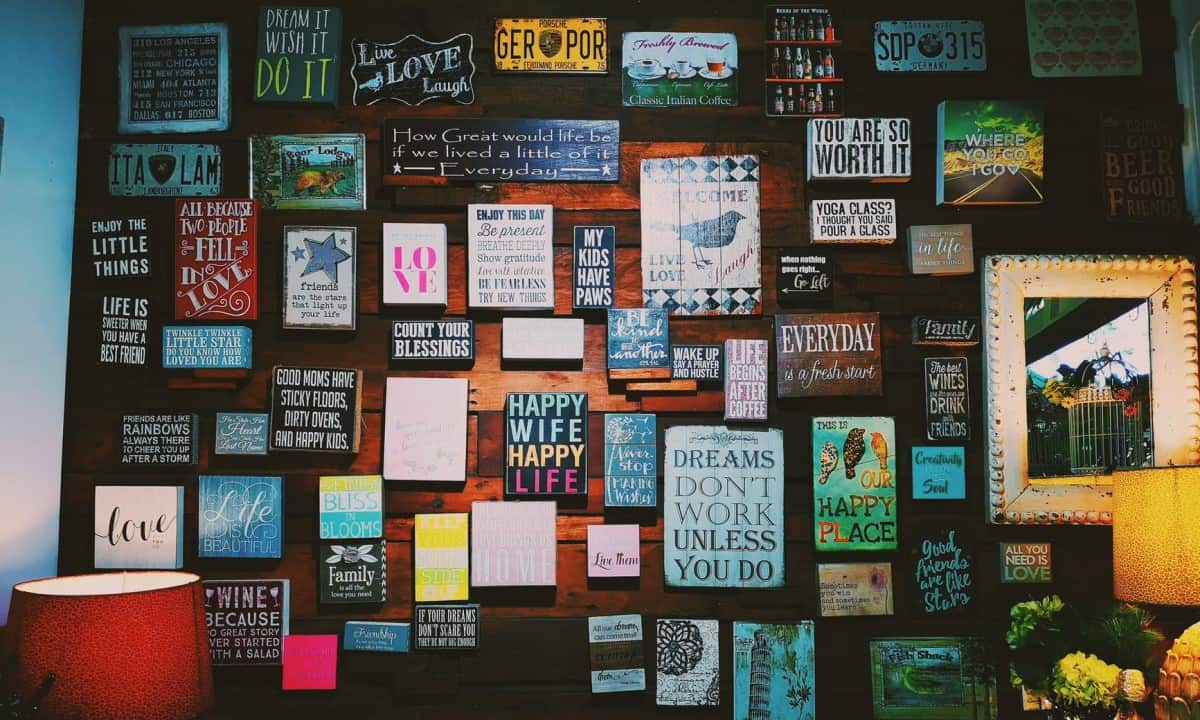 310 LOS ANGELES
CHICAGO
212 NEW YORK
MIAMI 404 ATLANTA
HOUSTON 713
415 SAN FRANCISCO
DALLAS 617 BOSTON
DREAM IT
WISH IT
DO IT
Live
LOVE
Laugh
PORSCHE
GER POR
FERDINAND PORSCHE
Freshly Brewed
Classic Italian Coffee
BEERS OF THE WORLD
SDP 315
GERMANY
ITALY
ITA LAM
LAMBORGHINI
Bear Lodge
How Great would life be
if we lived a little of it
Everyday
WELCOME
LIVE
LOVE
Laugh
YOU ARE SO
WORTH IT
WHERE
YOU GO
I GO
DRINK
GOOD
BEER
GOOD
FRIENDS
ENJOY THE
LITTLE
THINGS
ALL BECAUSE
TWO PEOPLE
FELL
IN
LOVE
friends
are the stars
that light up
your life
LO
VE
ENJOY THIS DAY
Be present
BREATHE DEEPLY
Show gratitude
BE FEARLESS
TRY NEW THINGS
MY
KIDS
HAVE
PAWS
YOGA CLASS?
I THOUGHT YOU SAID
POUR A GLASS
when nothing
goes right..
Go Left
THE BEST THINGS
in life
LIFE IS
SWEETER WHEN
YOU HAVE A
BEST FRIEND
TWINKLE TWINKLE
LITTLE STAR
DO YOU KNOW HOW
LOVED YOU ARE?
COUNT YOUR
BLESSINGS
BE
kind
to one
another
WAKE UP
SAY A PRAYER
AND HUSTLE
LIFE
BEGINS
AFTER
COFFEE
EVERYDAY
is a fresh start
Family
The best
WINES
DRINK
with
FRIENDS
FRIENDS ARE LIKE
RAINBOWS
ALWAYS THERE
TO CHEER YOU UP
AFTER A STORM
He Stole Her
Heart
So She Stole His
Last Name
GOOD MOMS HAVE
STICKY FLOORS,
DIRTY OVENS,
AND HAPPY KIDS.
HAPPY
WIFE
HAPPY
LIFE
Never
stop
Making
Wishes
DREAMS
DON'T
WORK
UNLESS
YOU DO
THIS IS
OUR
HAPPY
PLACE
Creativity
Soul
love
Life
IS
BEAUTIFUL
BLISS
IN
BLOOMS
Family
is all the
love you need
SIDE
HOME
Live them
Sometimes
you win
and sometimes
you learn
Good
friends
are like
Stars
ALL YOU
NEED IS
LOVE
WINE
BECAUSE
NO GREAT STORY
EVER STARTED
WITH A SALAD
Friendship
IF YOUR DREAMS
DON'T SCARE YOU
THEY'RE NOT BIG ENOUGH
All our dreams
can come true
Fish Shack